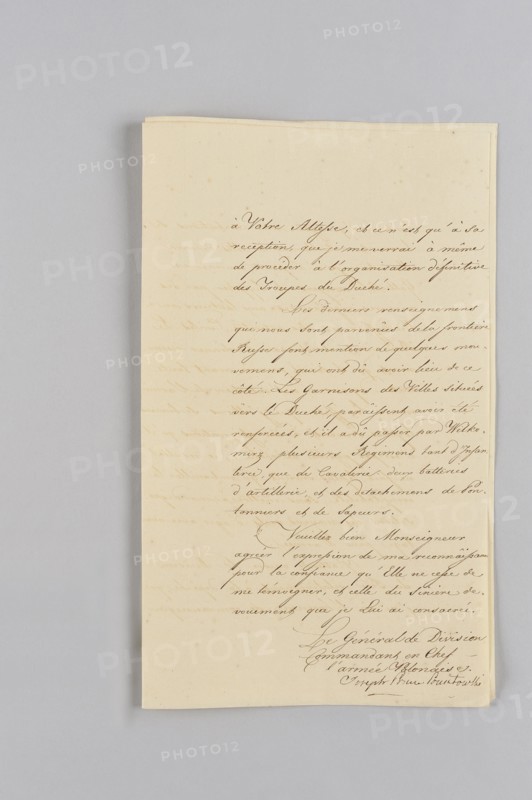 à Votre Altesse, et ce n'est qu'à sa
réception, que je me verrai à même
de procéder à l'organisation définitive
des Troupes du Duché.
Les derniers renseignemens
que nous sont parvenues de la frontière
Russe font mention de quelques mou-
vemens, qui ont dû avoir lieu de ce
côté. Les Garnisons des Villes situées
vers le Duché, paraissent avoir été
renforcées, et il a dû passer par Wilko-
mirz plusieurs Regimens tant d'Infan-
terie que de Cavalerie deux batteries
d'artillerie, et des detachemens de Pon-
tonniers et de Sapeurs.
Veuillez bien Monseigneur
agréer l'expression de ma reconnaissance
pour la confiance qu'Elle ne cesse de
me témoigner, et celle du sincère dé-
vouement que je Lui ai consacré.
Le Général de Division
Commandant en Chef
l'armée Polonaise.
Joseph Prince Poniatowski
PHOTO12